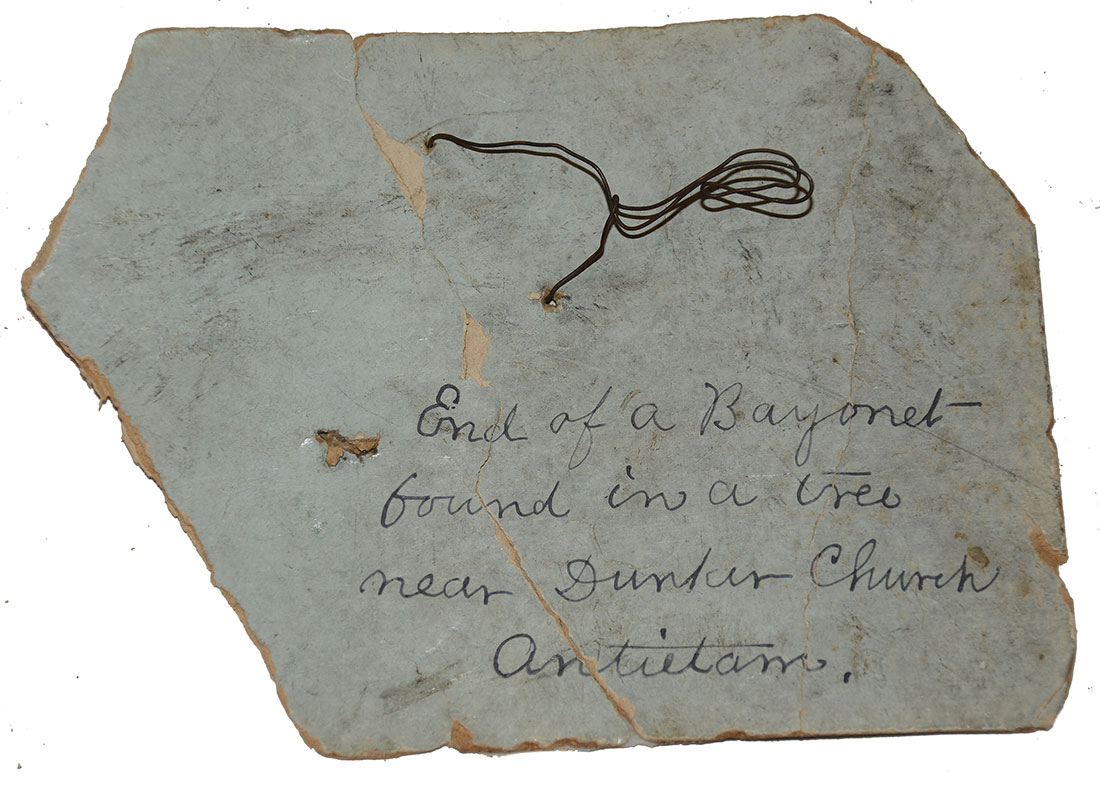 End of a Bayonet
found in a tree
near Dunker Church
Antietam.